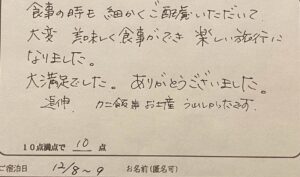 食事の時も 細かくご配慮いただいて
大変 美味しく食事ができ 楽しい旅行に
なりました。
大満足でした。 ありがとうございました。
追伸 カニ飯 お土産 うれしかったです。
10点満点で 10 点
ご宿泊日 12/8~9 お名前(匿名可)